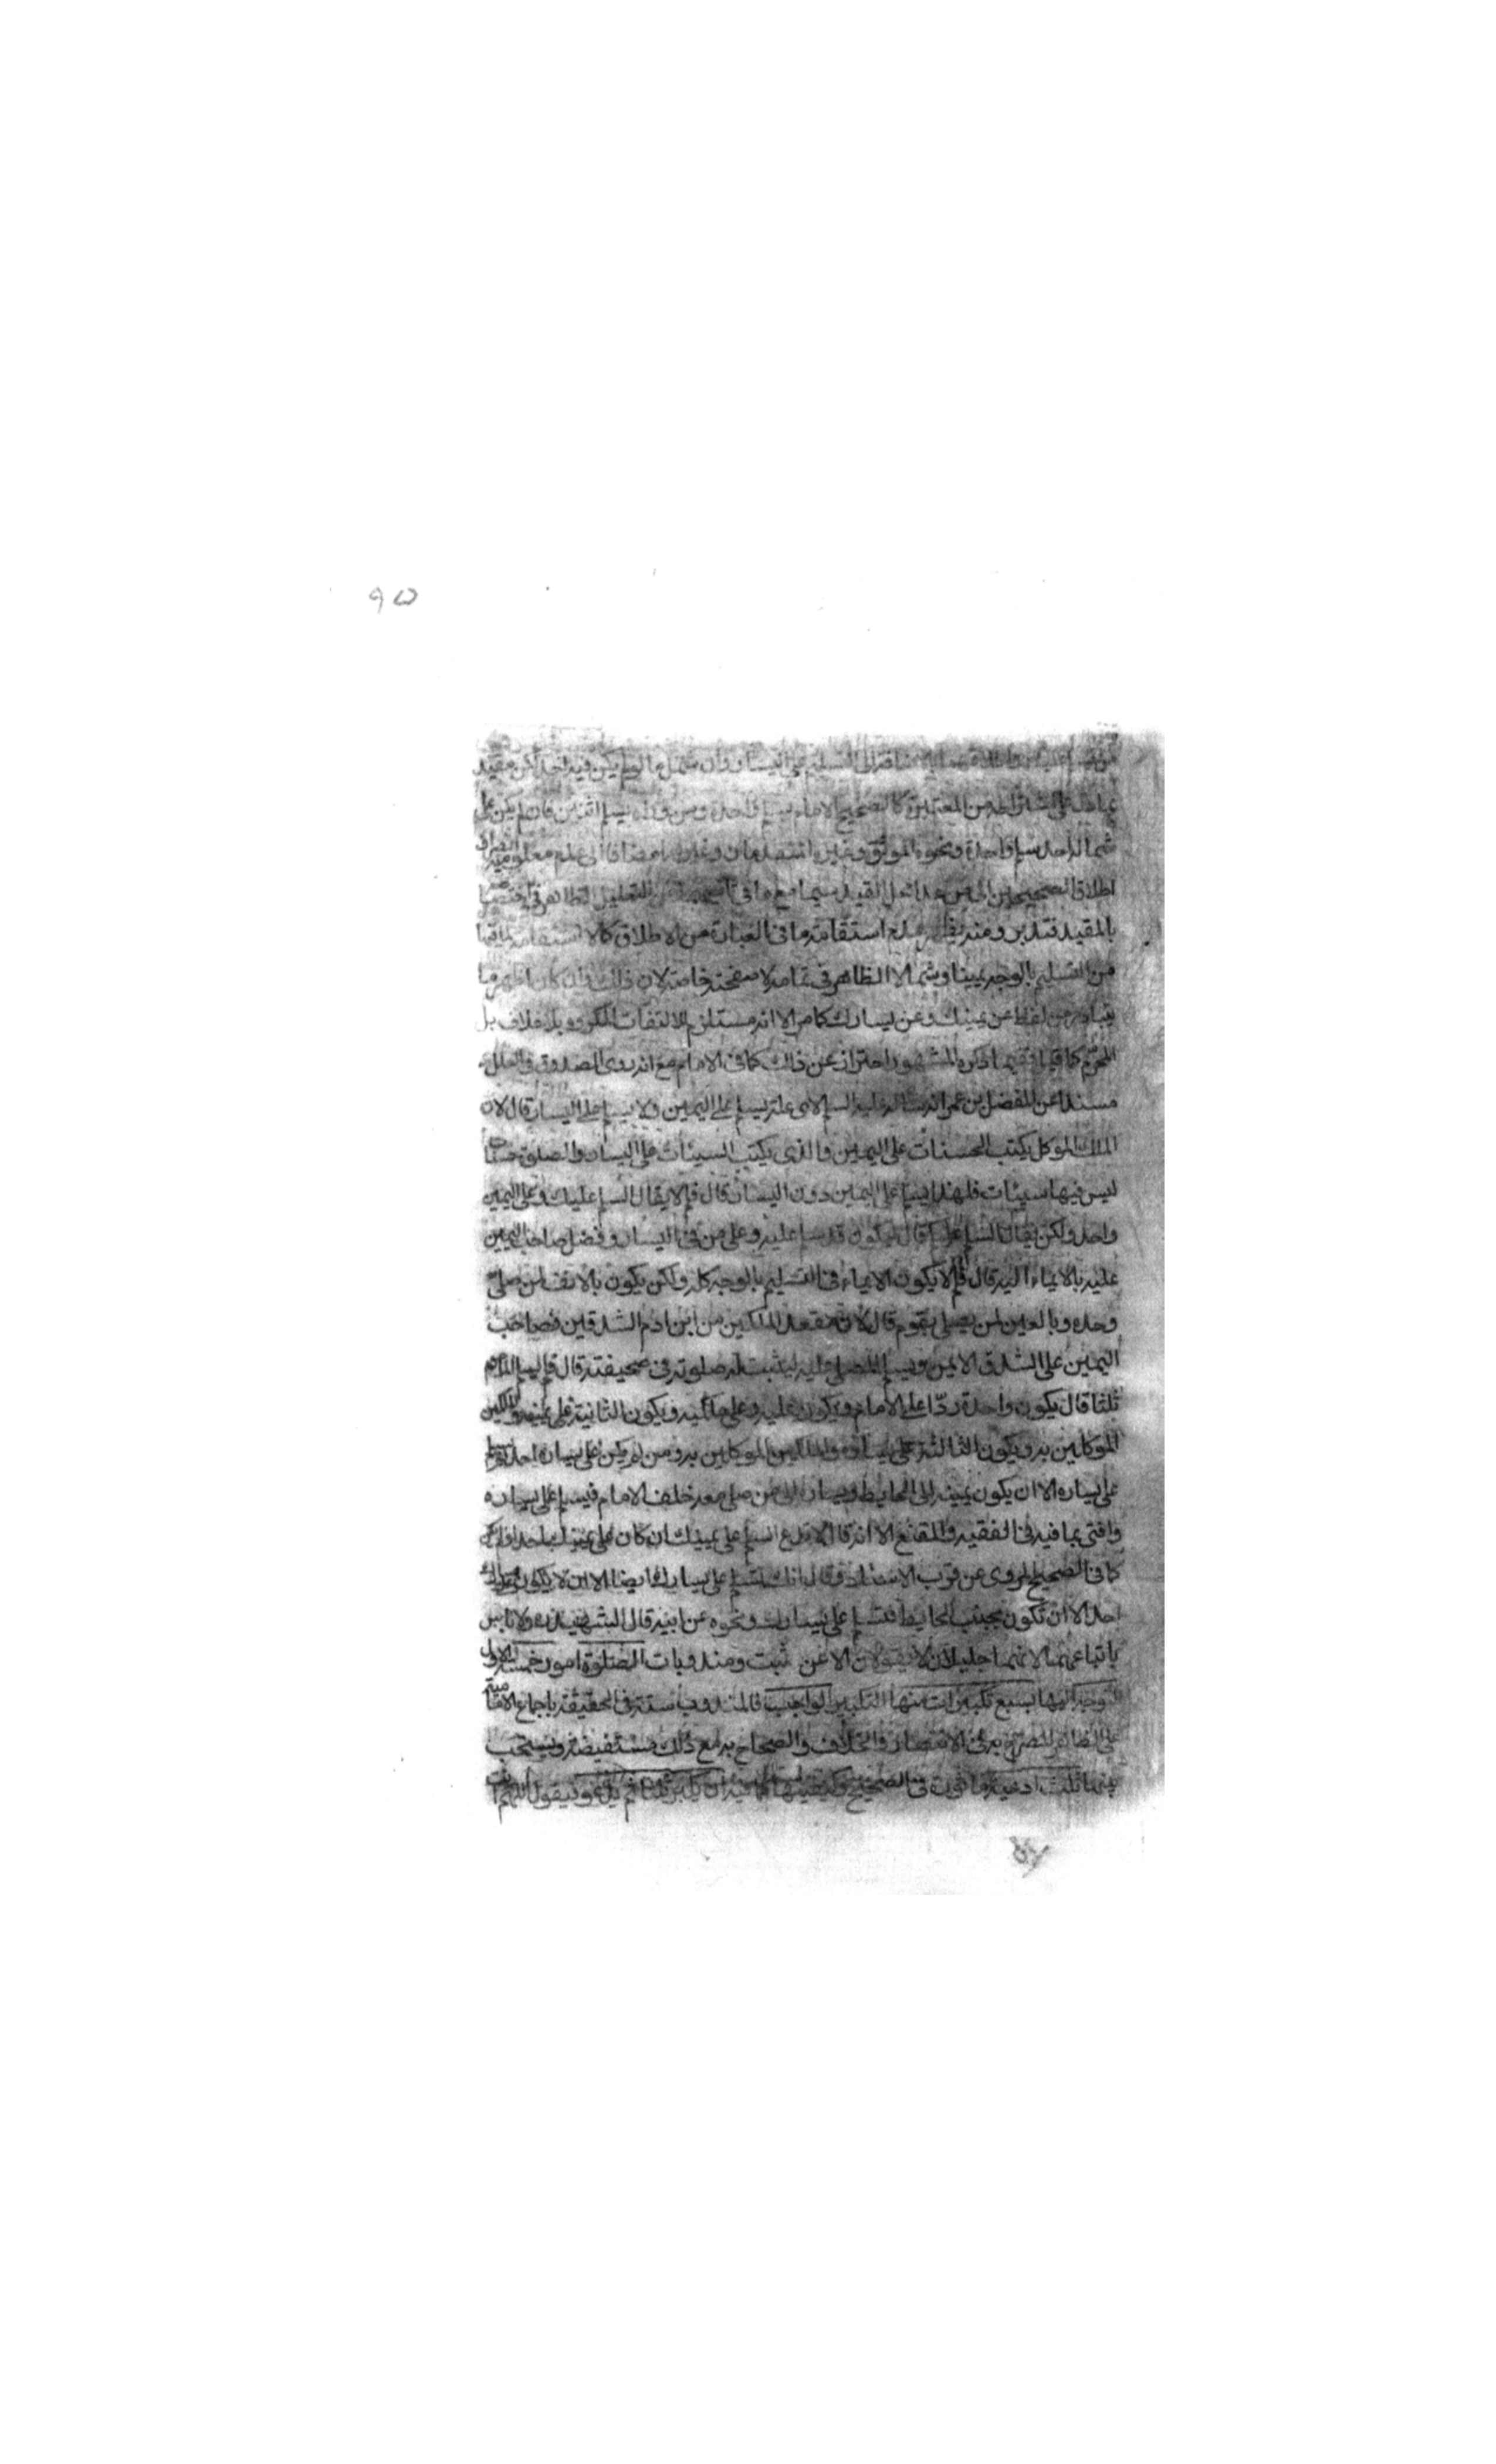 ٩٥
التسليم على اليسار وان شمل ما لو لم يكن فيه احد لكن مقيد
من المعتبرة كالصحيح الامام يسلم واحدة ومن وراه يسلم اثنين فان لم يكن على
شماله احد سلم واحدة ونحوه الموثق وغيره مضافا الى عدم معلومية انصراف
اطلاق الصحيحين الى القيد سيما مع ما في التعليل الظاهر في
بالمقيد فتدبر ومنه يظهر عدم استقامة ما في العبارة من الاطلاق كالاستقامة
من التسليم بالوجه يمينا وشمالا الظاهر في تمامه لا صفحته خاصة لان ذلك وان كان اظهر ما
يتبادر من لفظ عن يمينك وعن يسارك كما مر الا انه مستلزم للالتفات المكروه بلا خلاف بل
المحرم كما قيل ففيما ذكره المشهور احتراز عن ذلك كما في الامام مع انه روى الصدوق في العلل
مسندا عن المفضل بن عمر انه سأله عليه السلم لاى علة يسلم على اليمين ولا يسلم على اليسار قال لان
الملك الموكل يكتب الحسنات على اليمين والذى يكتب السيئات على اليسار والصلوة حسنات
ليس فيها سيئات فلهذا يسلم على اليمين دون اليسار قال فلم لا يقال السلم عليك وعلى اليمين
واحد ولكن يقال السلم عليكم قال ليكون قد سلم عليه وعلى من في اليسار وفضل صاحب اليمين
عليه بالايماء اليه قال فلم لا يكون الايماء في التسليم بالوجه كله ولكن يكون بالانف لمن صلى
وحده وبالعين لمن يصلى بقوم قال لان مقعد الملكين من ابن ادم الشدقين فصاحب
اليمين على الشدق الايمن ويسلم المصلى عليه ليثبت له صلوته في صحيفته قال فلم يسلم الماموم
ثلثا قال يكون واحدة ردا على الامام ويكون عليه وعلى ملكيه ويكون الثانية على يمينه والملكين
الموكلين به ويكون الثالثة على يساره والملكين الموكلين به ومن لم يكن على يساره احد لم يسلم
على يساره الا ان يكون يمينه الى الحايط ويساره الى من صلى معه خلف الامام فيسلم على يساره
وافتى بما فيه في الفقيه والمقنع الا انه قال لا تدع التسليم على يمينك ان كان على يمينك احد او لم يكن
كما في الصحيح المروى عن قرب الاسناد وقال انك تسلم على يسارك ايضا الا ان لا يكون على يسارك
احد الا ان تكون بجنب الحايط فتسلم على يسارك ونحوه عن ابيه قال الشهيد ره ولا باس
باتباعهما لانهما جليلان لا يقولان الا عن ثبت ومندوبات الصلوة امور خمسة الاول
التوجه اليها بسبع تكبيرات منها التكبير الواجب فالمندوب ستة في الحقيقة باجماع الامامية
على الظاهر المصرح به في الانتصار والخلاف والصحاح به مع ذلك مستفيضة ويستحب
بينها ثلث ادعية ماثورة في الصحيح وكيفيتها كما فيه ان يكبر ثلثا ثم يدعو فيقول اللهم انت